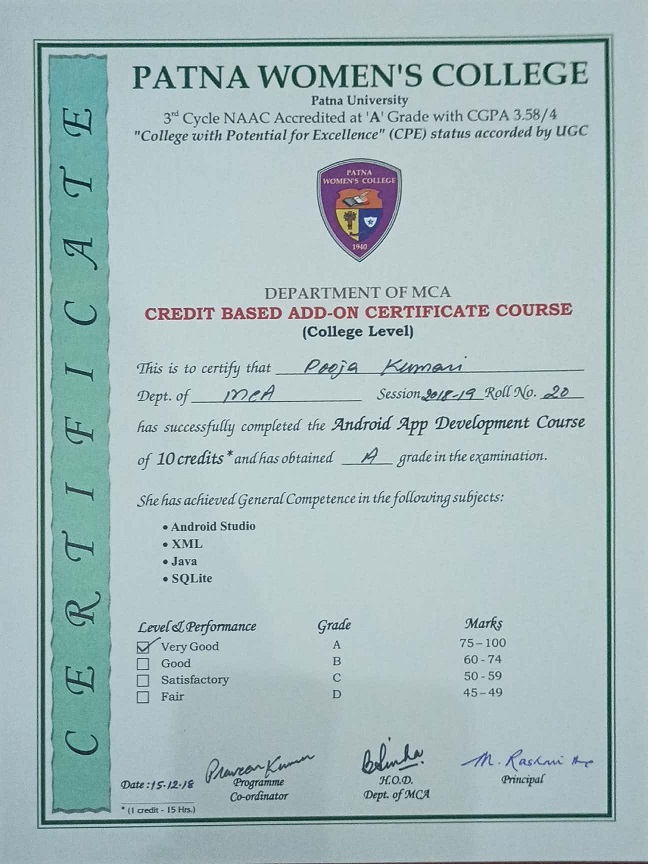 CERTIFICATE
PATNA WOMEN'S COLLEGE
Patna University
3rd Cycle NAAC Accredited at 'A' Grade with CGPA 3.58/4
"College with Potential for Excellence" (CPE) status accorded by UGC
PATNA
WOMEN'S COLLEGE
1940
DEPARTMENT OF MCA
CREDIT BASED ADD-ON CERTIFICATE COURSE
(College Level)
This is to certify that Pooja Kumari
Dept. of MCA Session 2018-19 Roll No. 20
has successfully completed the Android App Development Course
of 10 credits* and has obtained A grade in the examination.
She has achieved General Competence in the following subjects:
• Android Studio
• XML
• Java
• SQLite
Level & Performance Grade Marks
Very Good A 75-100
Good B 60-74
Satisfactory C 50-59
Fair D 45-49
Praveen Kumar BSinha M. Rashmi
Date: 15-12-18 Programme H.O.D. Principal
Co-ordinator Dept. of MCA
* (1 credit - 15 Hrs.)